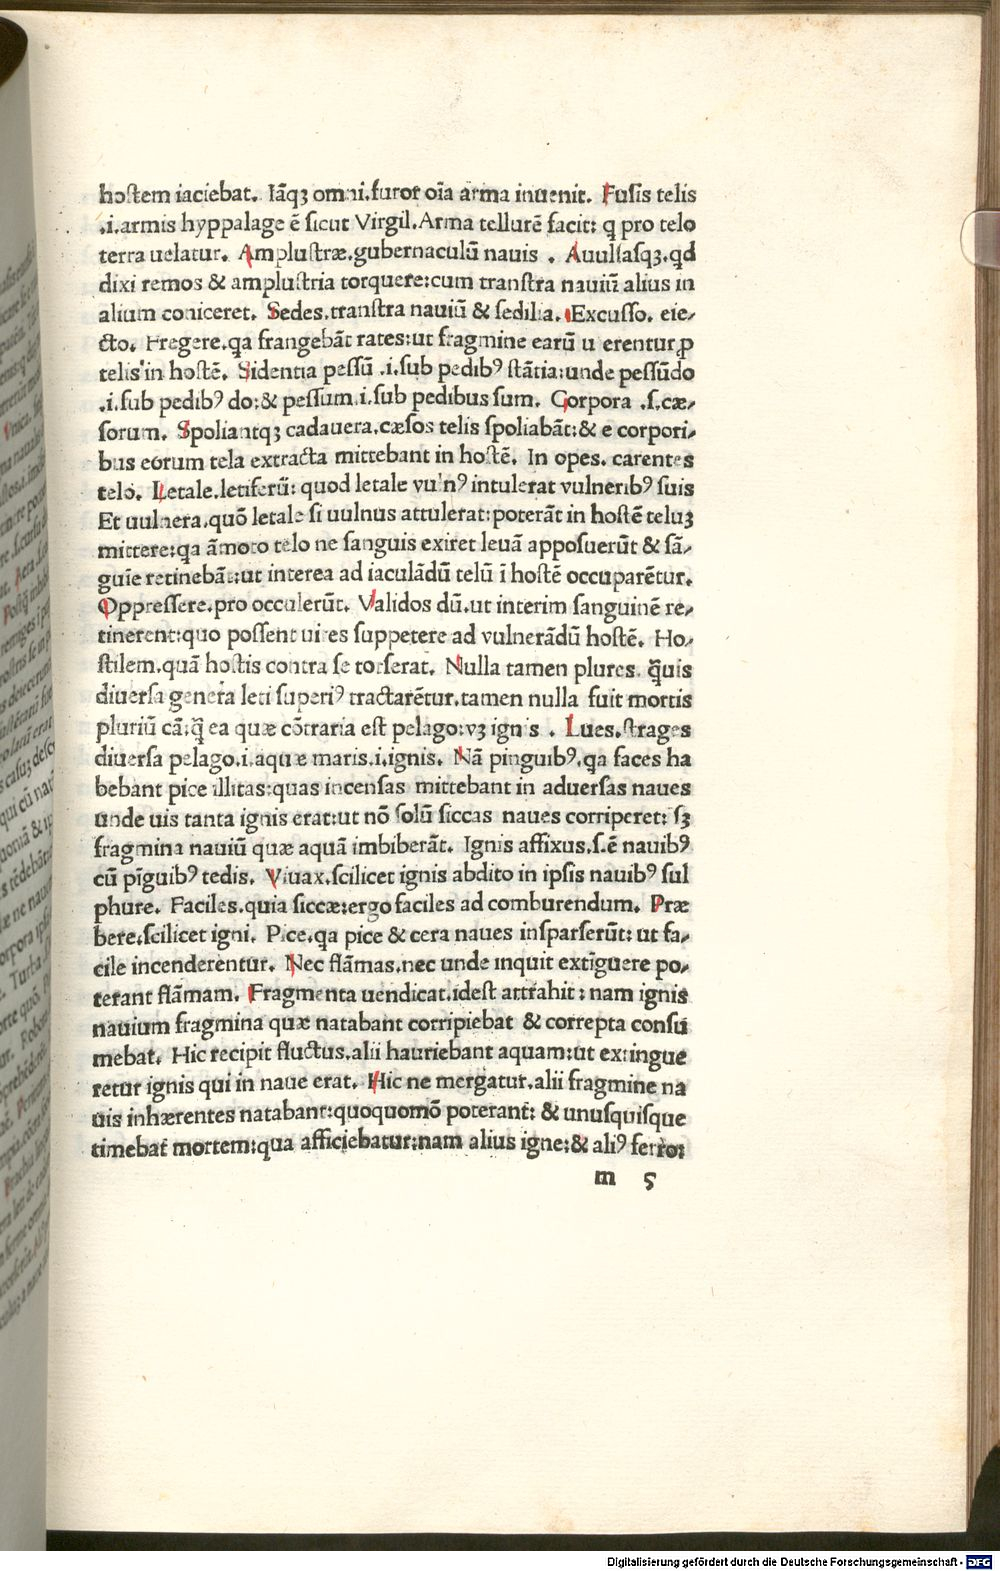 hostem iaciebat. Iãqꝫ omni.furor oĩa arma inuenit. Fusis telis
.i.armis hyppalage ẽ sicut Virgil.Arma tellurẽ facit: q pro telo
terra uelatur. Amplustræ.gubernaculũ nauis . Auulsasqꝫ.qd
dixi remos & amplustria torquere:cum transtra nauiũ alius in
alium coniceret. Sedes.transtra nauiũ & sedilia. Excusso. eie-
cto. Fregere.qa frangebãt rates:ut fragmine earũ u erentur ꝓ
telis in hostẽ. Sidentia pessũ .i.sub pedibꝰ stãtia:unde pessũdo
.i.sub pedibꝰ do:& pessum.i.sub pedibus sum. Corpora .s.cæ-
sorum. Spoliantqꝫ cadauera.cæsos telis spoliabãt:& e corpori-
bus eorum tela extracta mittebant in hostẽ. In opes. carentes
telo. Letale.letiferũ: quod letale vulnꝰ intulerat vulneribꝰ suis
Et uulnera.quõ letale si uulnus attulerat:poterãt in hostẽ teluꝫ
mittere:qa ãmoto telo ne sanguis exiret leuã apposuerũt & sã-
guĩe retinebãt:ut interea ad iaculãdũ telũ ĩ hostẽ occuparẽtur.
Oppressere.pro occulerũt. Validos dũ.ut interim sanguinẽ re-
tinerent:quo possent uires suppetere ad vulnerãdũ hostẽ. Ho-
stilem.quã hostis contra se torserat. Nulla tamen plures. q̃uis
diuersa genera leti superiꝰ tractarẽtur.tamen nulla fuit mortis
pluriũ cã:q̃ ea quæ cõtraria est pelago:vꝫ ignis . Lues.strages
diuersa pelago.i.aquæ maris.i.ignis. Nã pinguibꝰ.qa faces ha
bebant pice illitas:quas incensas mittebant in aduersas naues
unde uis tanta ignis erat:ut nõ solũ siccas naues corriperet: sꝫ
fragmina nauiũ quæ aquã imbiberãt. Ignis affixus.s.ẽ nauibꝰ
cũ pĩguibꝰ tedis. Viuax.scilicet ignis abdito in ipsis nauibꝰ sul
phure. Faciles.quia siccæ:ergo faciles ad comburendum. Præ
bere.scilicet igni. Pice.qa pice & cera naues insparserũt: ut fa-
cile incenderentur. Nec flãmas.nec unde inquit extĩguere po-
terant flãmam. Fragmenta uendicat.idest attrahit: nam ignis
nauium fragmina quæ natabant corripiebat & correpta consũ
mebat. Hic recipit fluctus.alii hauriebant aquam:ut extingue
retur ignis qui in naue erat. Hic ne mergatur.alii fragmine na
uis inhærentes natabant:quoquomõ poterant: & unusquisque
timebat mortem:qua afficiebatur:nam alius igne:& aliꝰ ferro:
m 5
Digitalisierung gefördert durch die Deutsche Forschungsgemeinschaft - DFG